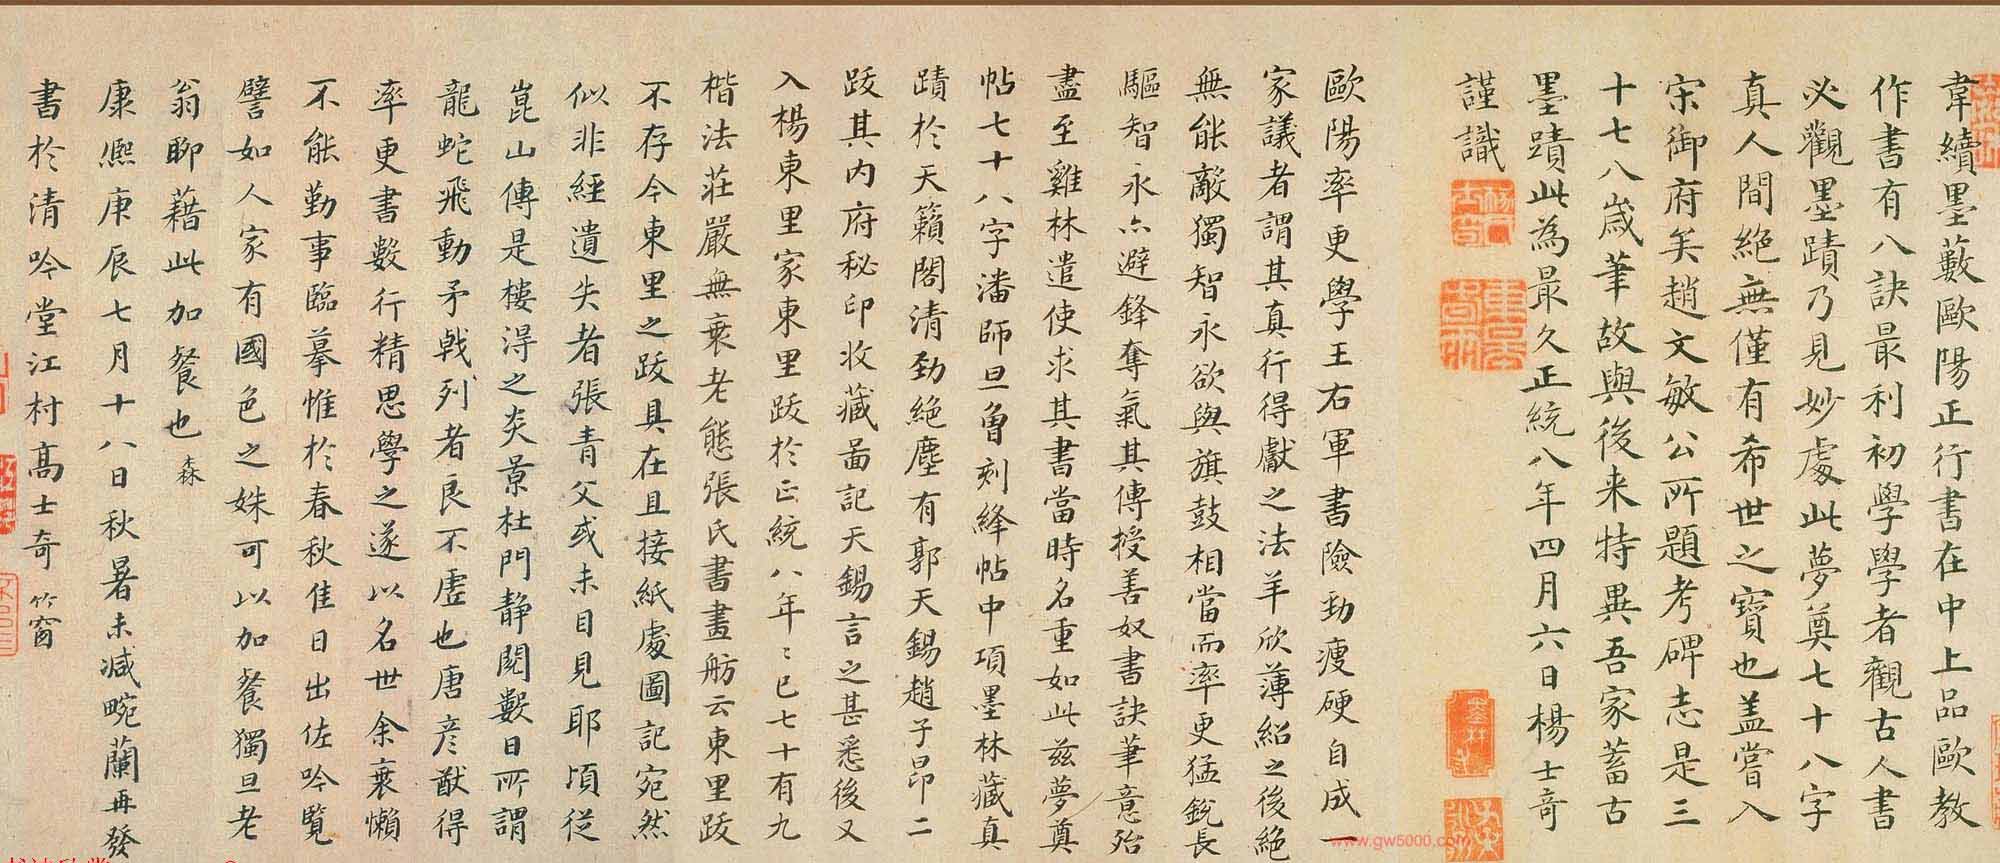 韋續墨藪歐陽正行書在中上品歐教
作書有八訣最利初學學者觀古人書
必觀墨蹟乃見妙處此夢奠七十八字
真人間絕無僅有希世之寶也蓋嘗入
宋御府矣趙文敏公所題考碑志是三
十七八歲筆故與後来特異吾家蓄古
墨蹟此為最久正統八年四月六日楊士竒
謹識
歐陽率更學王右軍書險勁瘦硬自成一
家議者謂其真行得獻之法羊欣薄紹之後絕
無能敵獨智永欲與旗鼓相當而率更猛銳長
驅智永亦避鋒奪氣其傳授善奴書訣筆意殆
盡至雞林遣使求其書當時名重如此兹夢奠
帖七十八字潘師旦曾刻絳帖中項墨林藏真
蹟於天籟閣清勁絕塵有郭天錫趙子昂二
跋其内府秘印收藏畐記天錫言之甚悉後又
入楊東里家東里跋於正統八年〻已七十有九
楷法莊嚴無衰老態張氏書畫舫云東里跋
不存今東里之跋具在且接紙處圖記宛然
似非經遺失者張青父或未目見耶頃從
崑山傳是樓得之炎景杜門静閱數日所謂
龍蛇飛動矛戟列者良不虛也唐彦猷得
率更書數行精思學之遂以名世余衰懶
不能勤事臨摹惟於春秋佳日出佐吟覽
譬如人家有國色之姝可以加餐獨旦老
翁聊藉此加餐也 森
康熙庚辰七月十八日秋暑未減畹蘭再發
書於清吟堂江村高士奇 竹窗
www.gw5000.com